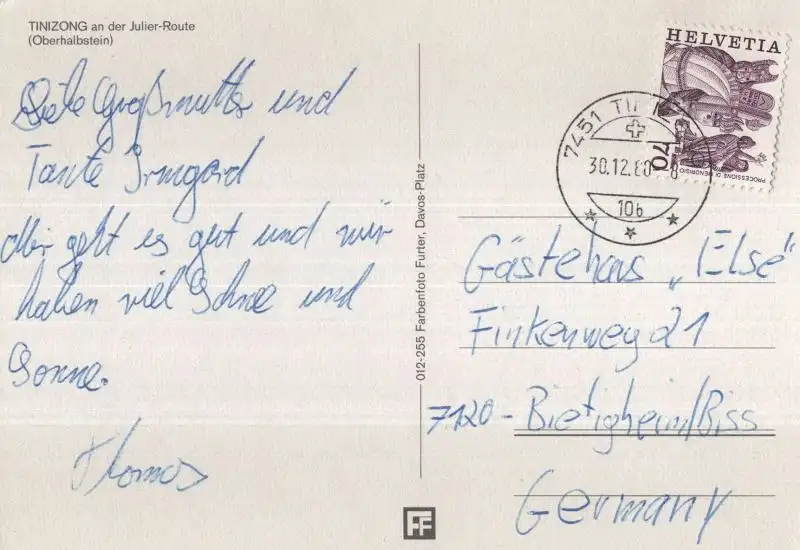 TINIZONG an der Julier-Route
(Oberhalbstein)
Liebe Großmutter und
Tante Irmgard
Mir geht es gut und wir
haben viel Schnee und
Sonne.
Thomas
012-255 Farbenfoto Furter, Davos-Platz
FF
HELVETIA
70
PROCESSIONE DI MENDRISIO
7451 TINIZONG
30.12.80 -18
106
Gästehaus „Else"
Finkenweg 21
7120 - Bietigheim/Biss
Germany